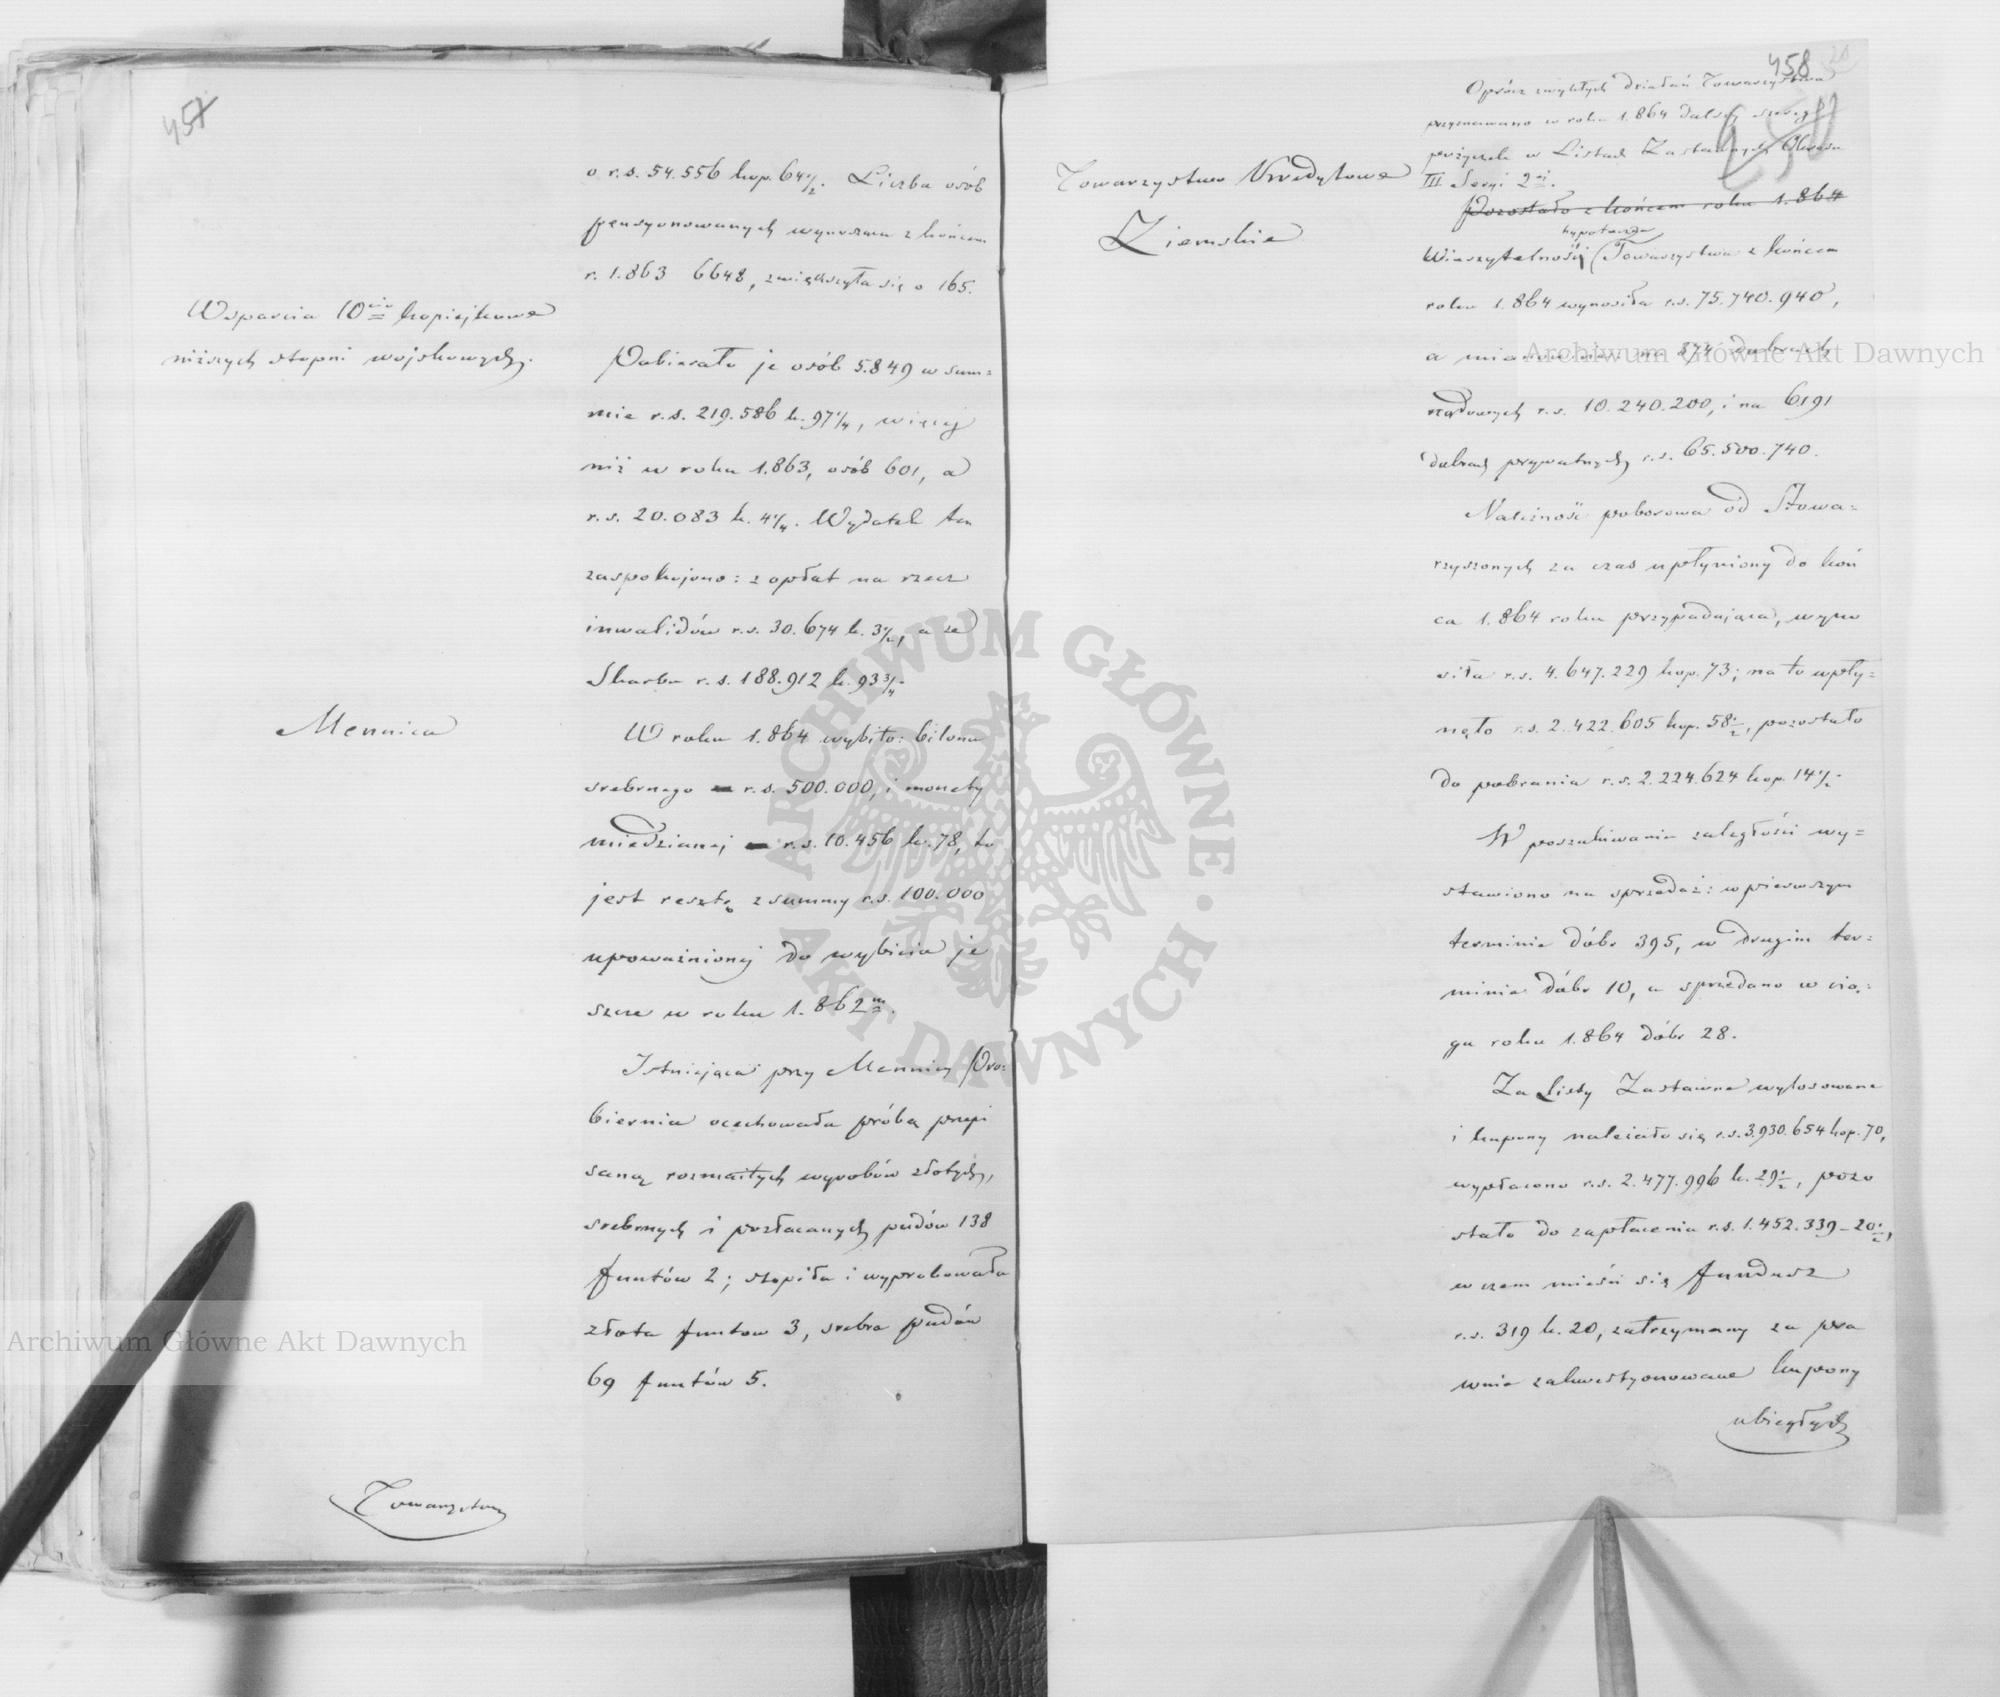 457
o r.s. 54.556 kop. 64½. Liczba osób
pensyonowanych wynosząca z końcem
r. 1.863 6648, zwiększyła się o 165.
Wsparcia 10cio kopiejkowe
niższych stopni wojskowych.
Pobierało je osób 5.849 w sum=
mie r.s. 219.586 k. 97¼, więcej
niż w roku 1.863, osób 601, a
r.s. 20.083 k. 4¼. Wydatek ten
zaspokojono: z opłat na rzecz
inwalidów r.s. 30.674 k. 3½, a ze
Skarbu r.s. 188.912 k. 93¾.
Mennica
W roku 1.864 wybito: bilonu
srebrnego r.s. 500.000, i monety
miedzianej r.s. 10.456 k. 78, to
jest resztę z summy r.s. 100.000
upoważnionej do wybicia je
szcze w roku 1.862m.
Istniejąca przy Mennicy Pro=
biernia ocechowała próbą przepi
saną rozmaitych wyrobów złotych,
srebrnych i pozłacanych pudów 138
funtów 2; stopiła i wyprobowała
złota funtow 3, srebra pudów
69 funtów 5.
Towarzystwo
458
Oprócz zwykłych działań Towarzystwa
przyznawano w roku 1.864 dalszy szereg
pożyczek w Listach Zastawnych Okresu
III Seryi 2ej.
Towarzystwo Kredytowe
Ziemskie
Pozostało z końcem roku 1.864
hypoteczna
Wierzytelność Towarzystwa z końcem
roku 1.864 wynosiła r.s. 75.740.940,
a mianowicie: na 374 dobrach
rządowych r.s. 10.240.200, i na 6191
dobrach prywatnych r.s. 65.500.740.
Należność poborowa od Stowa=
rzyszonych za czas upłyniony do koń
ca 1.864 roku przypadająca, wyno
siła r.s. 4.647.229 kop. 73; na to wpły=
nęło r.s. 2.422.605 kop. 58½, pozostało
do pobrania r.s. 2.224.624 kop. 14½.
W poszukiwaniu zaległości wy=
stawiono na sprzedaż: w pierwszym
terminie dóbr 395, w drugim ter=
minie dóbr 10, a sprzedano w cią=
gu roku 1.864 dóbr 28.
Za Listy Zastawne wylosowane
i kupony należało się r.s. 3.930.654 kop. 70,
wypłacono r.s. 2.477.996 k. 29½, pozo
stało do zapłacenia r.s. 1.452.339 - 20½,
w czem mieści się fundusz
r.s. 319 k. 20, zatrzymany za pra
wnie zakwestyonowane kupony
ubiegłych
ARCHIWUM GŁÓWNE · AKT DAWNYCH ·
Archiwum Główne Akt Dawnych
Archiwum Główne Akt Dawnych